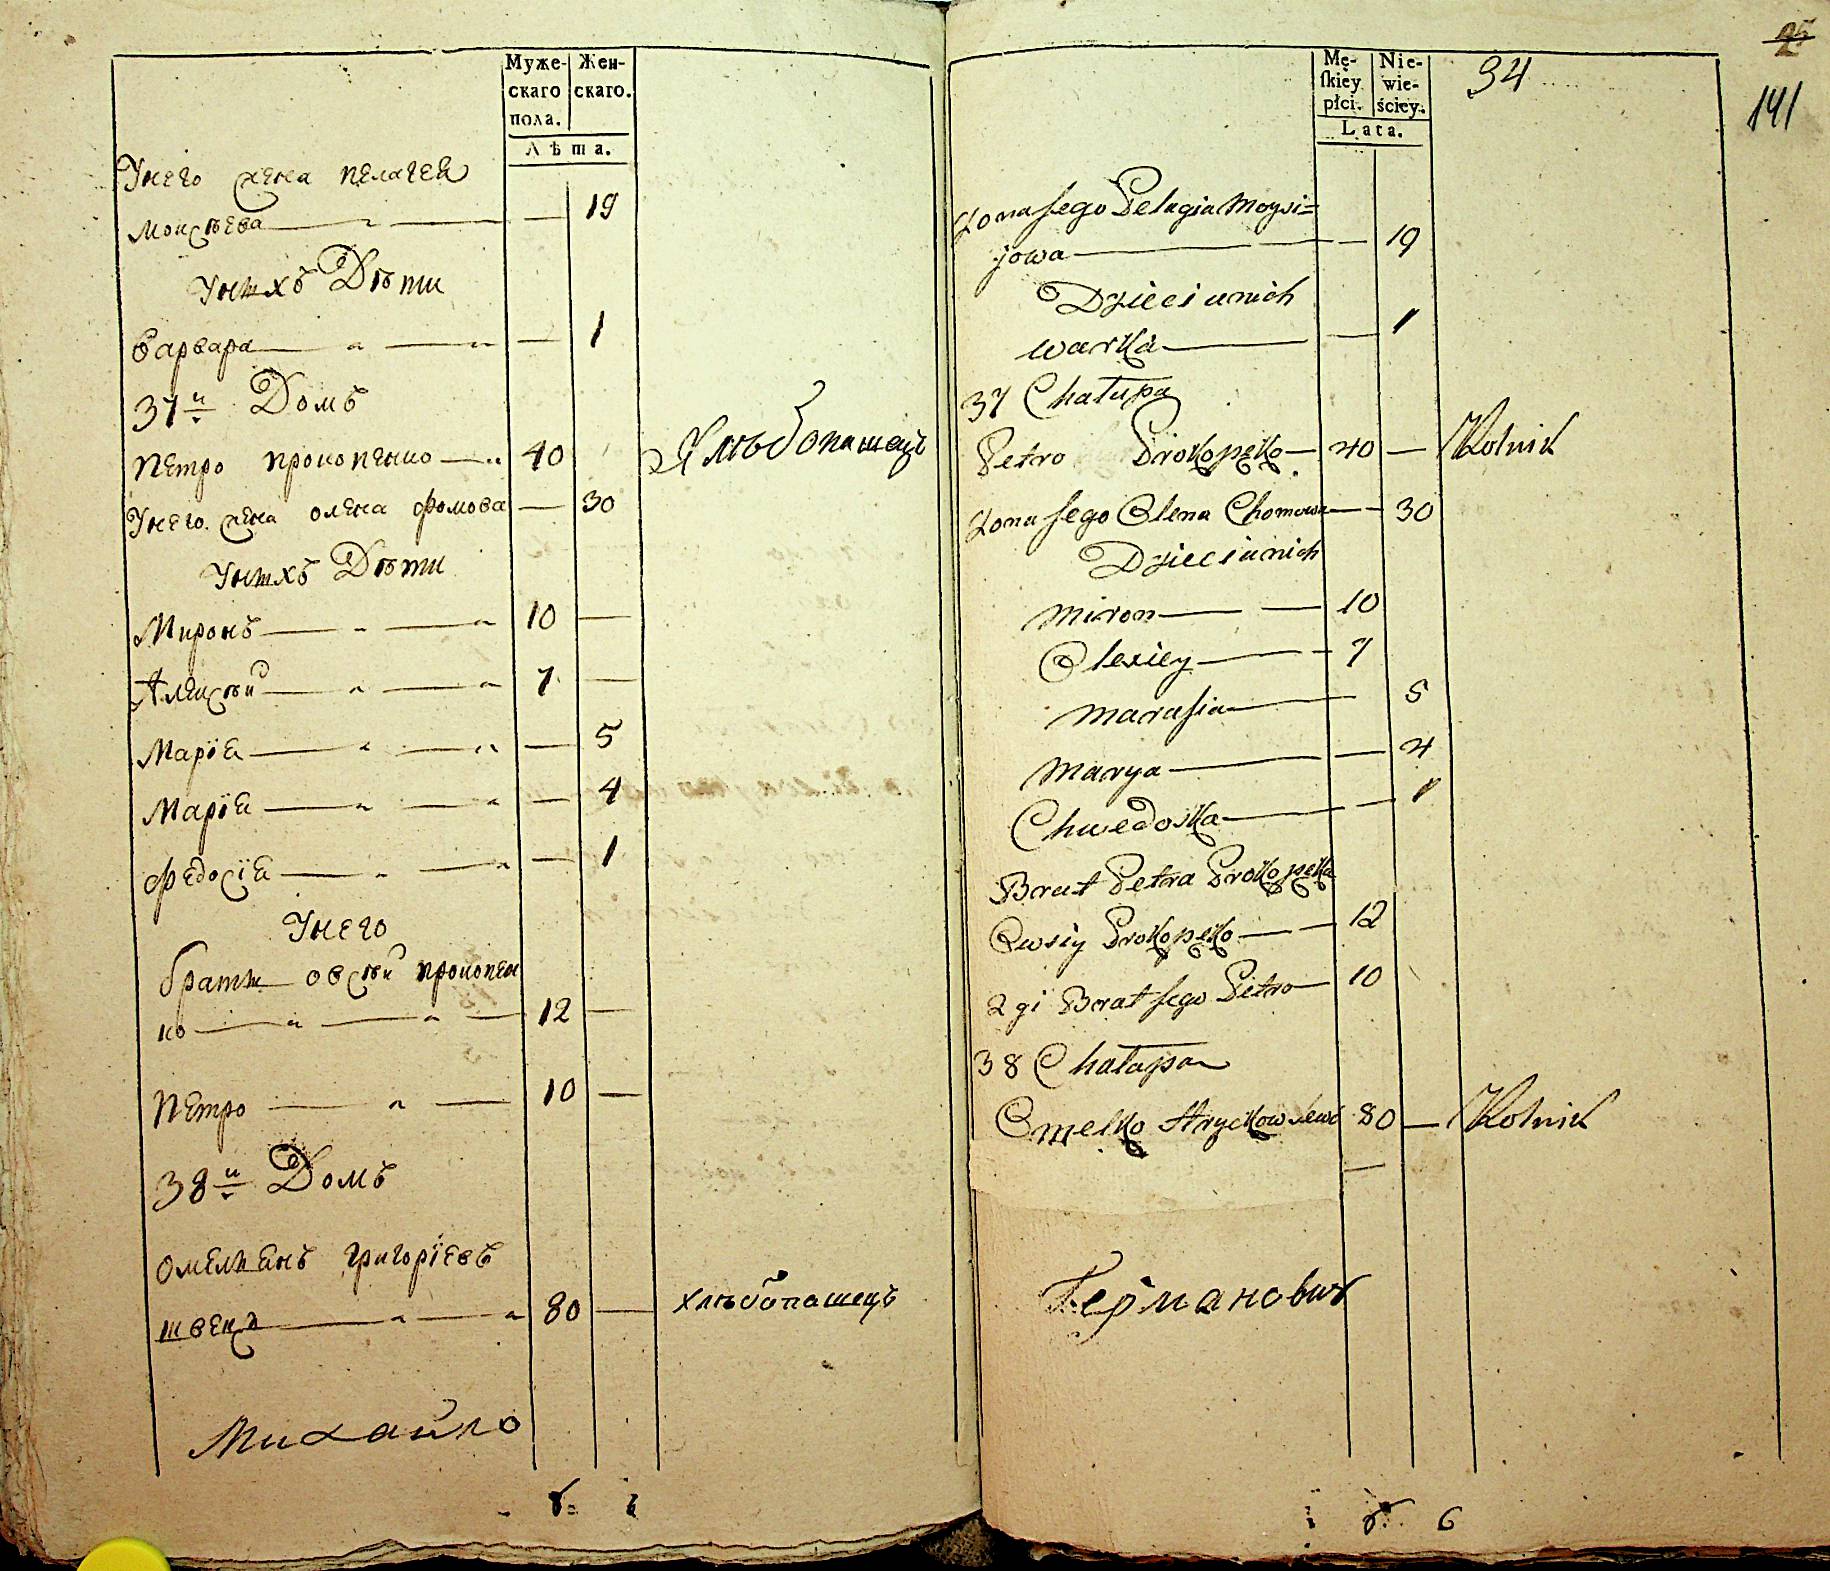 Муже-
скаго
пола.
Жен-
скаго.
Лѣта.
Унего жена пелагея
Моисѣева — — 19
Унихъ Дѣти
Варвара — — 1
37й Домъ
Петро прокопенко — 40 Хлѣбопашецъ
Унего жена олена фомова — 30
Унихъ Дѣти
Миронъ — — 10 —
Алексѣй — — 7 —
Марія — — 5
Марія — — 4
Федосія — — 1
Унего
братья овсѣй прокопен
ко — — 12 —
Петро — — 10 —
38й Домъ
Омельянъ григоріевъ
швецъ — — 80 — хлѣбопашецъ
Михайло
8 6
Mę-
skiéy
płci.
Nie-
wie-
ściey.
Lata.
34
25
141
Zona Jego Pelagia Moysi=
jowa — — 19
Dzieci u nich
Warka — — 1
37 Chałupa
Petro Prokopęko — 40 — Rolnik
Zona Jego Olena Chomowa — 30
Dzieci u nich
Miron — — 10
Olexiey — — 7
Marusia — 5
Marya — — 4
Chwedoska — — 1
Brat Petra Prokopęka
Owsiy Prokopęko — — 12
2gi Brat Jego Petro — 10
38 Chałupa
Omelko 80 — Rolnik
—
Германович
8 6